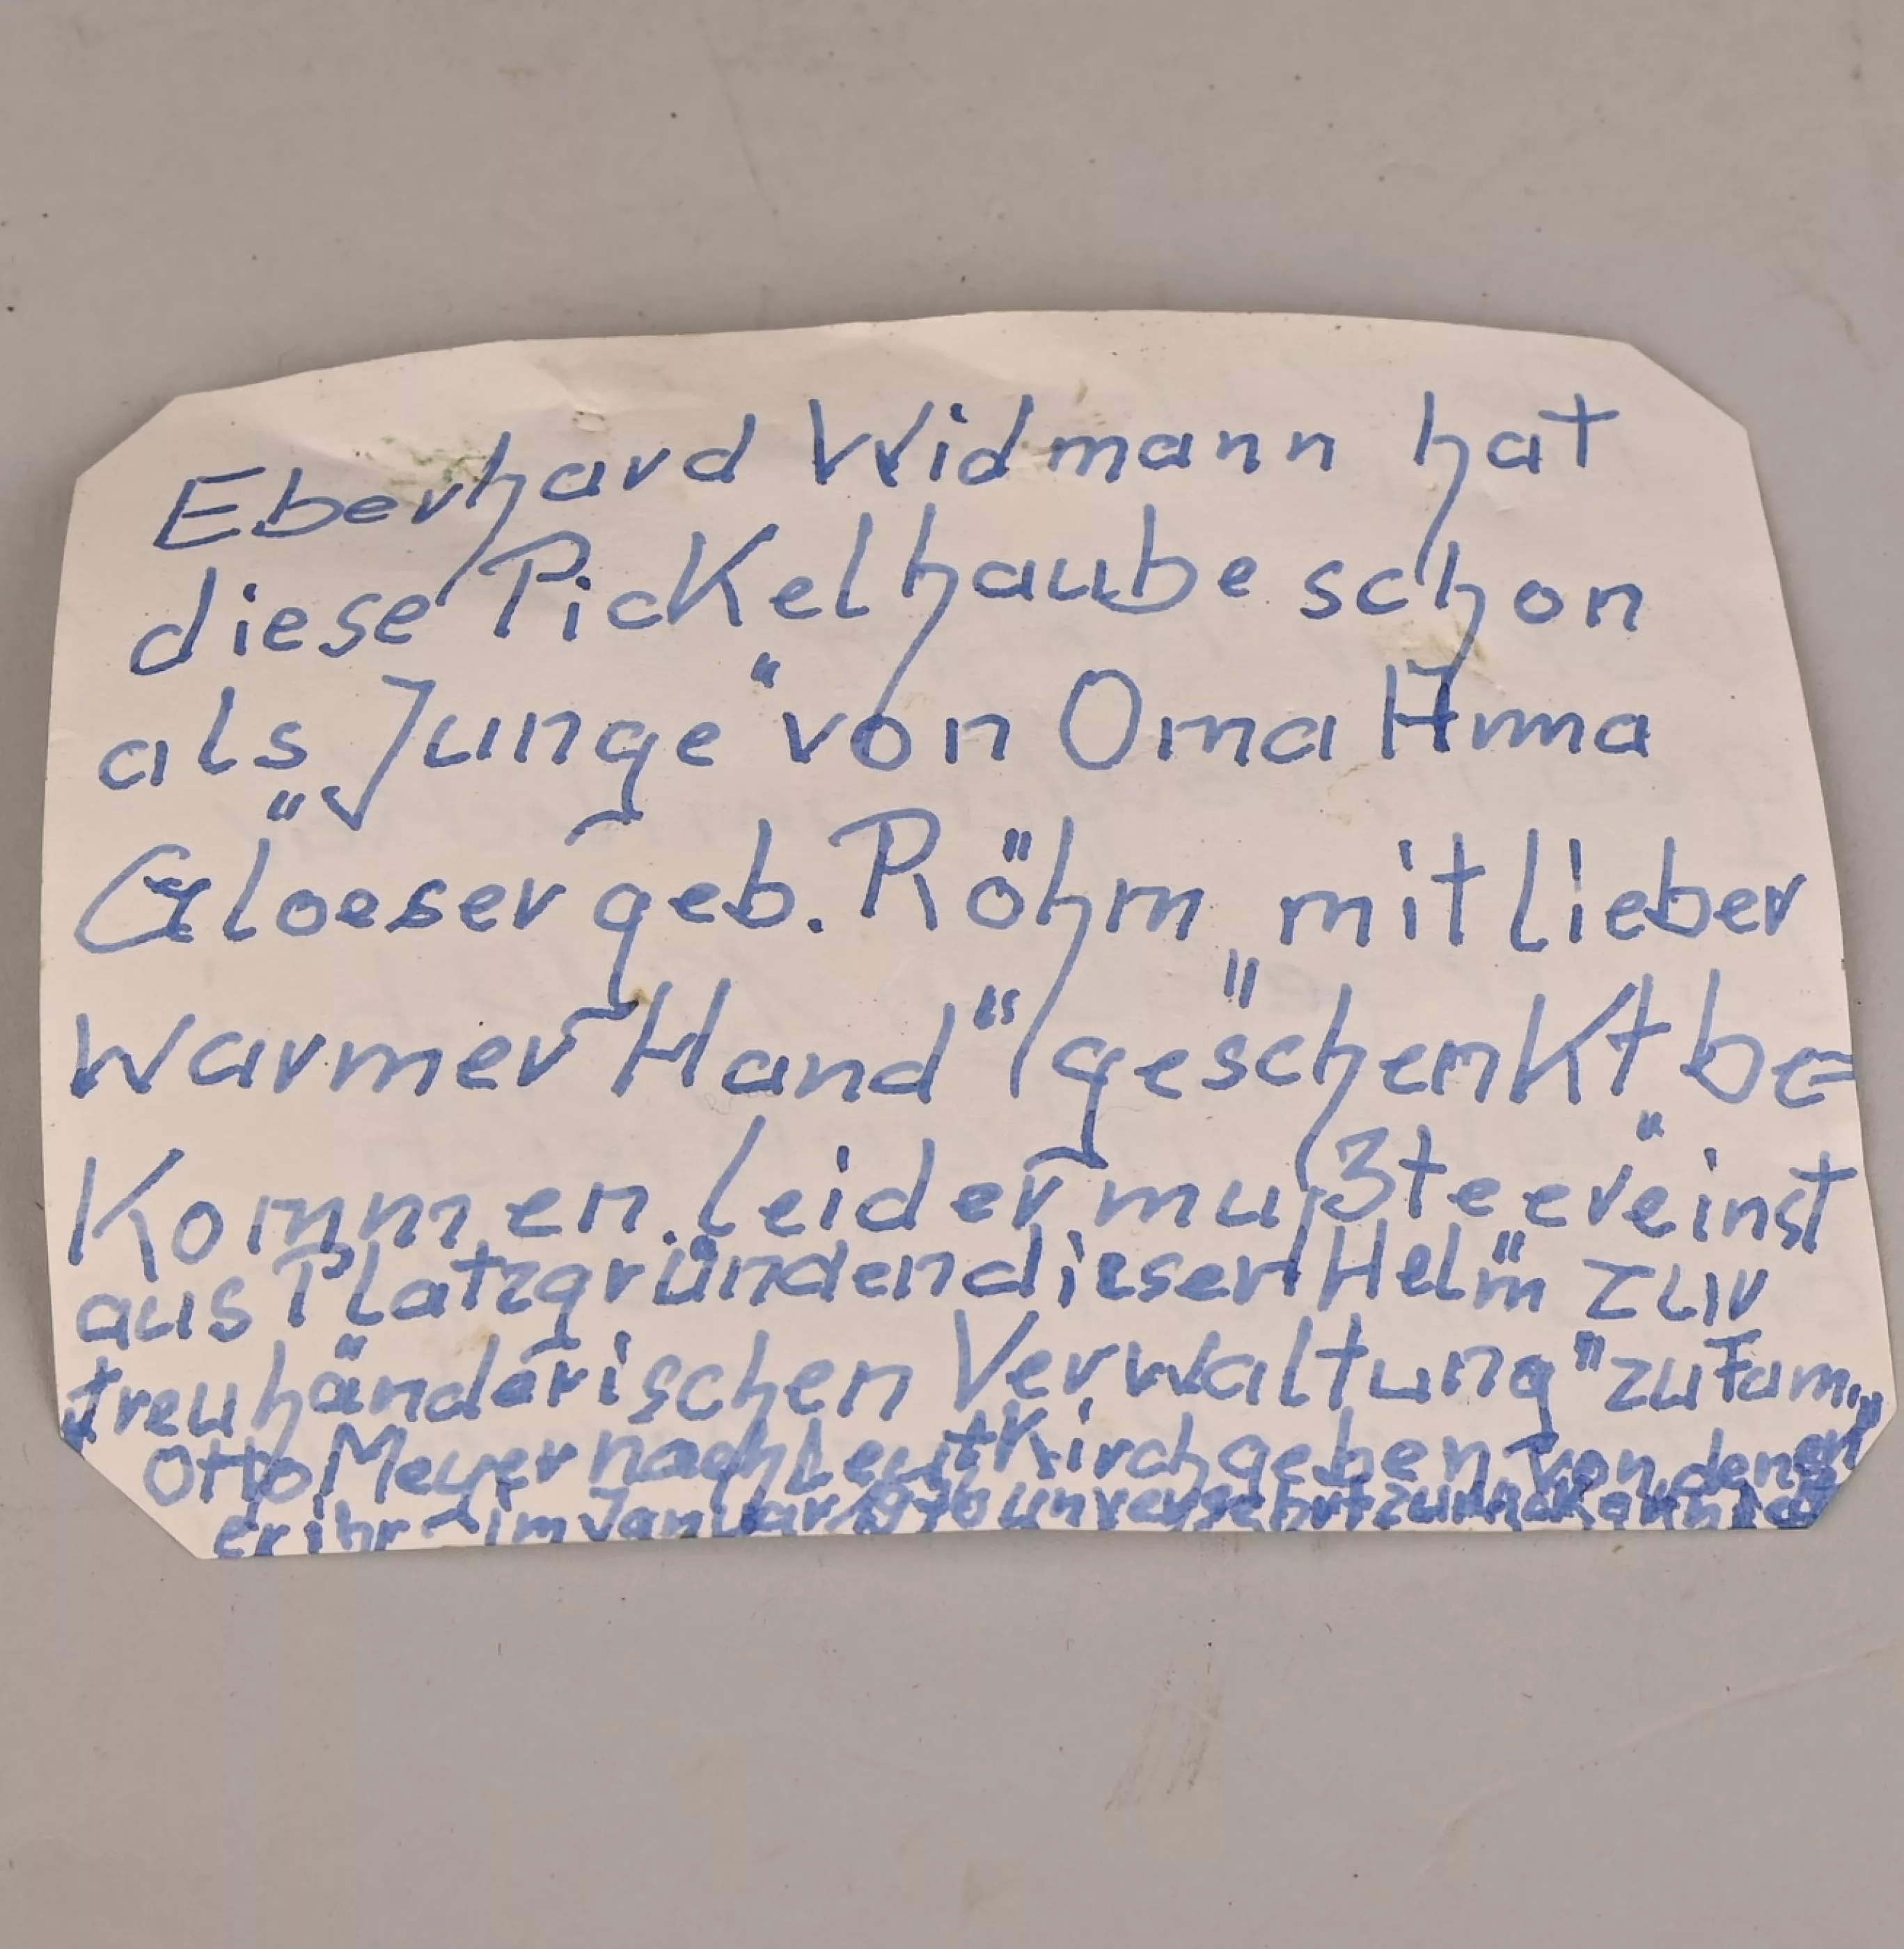 Eberhard Widmann hat
diese Pickelhaube schon
als "Junge" von Oma Anna
Gloeser geb. Röhm "mit lieber
warmer Hand" geschenkt be=
kommen. Leider mußte er einst
aus Platzgründen diesen Helm "zur
treuhänderischen Verwaltung" zu Fam.
Otto Meyer nach Leutkirch geben, von denen
er ihn im Januar unversehrt zurück